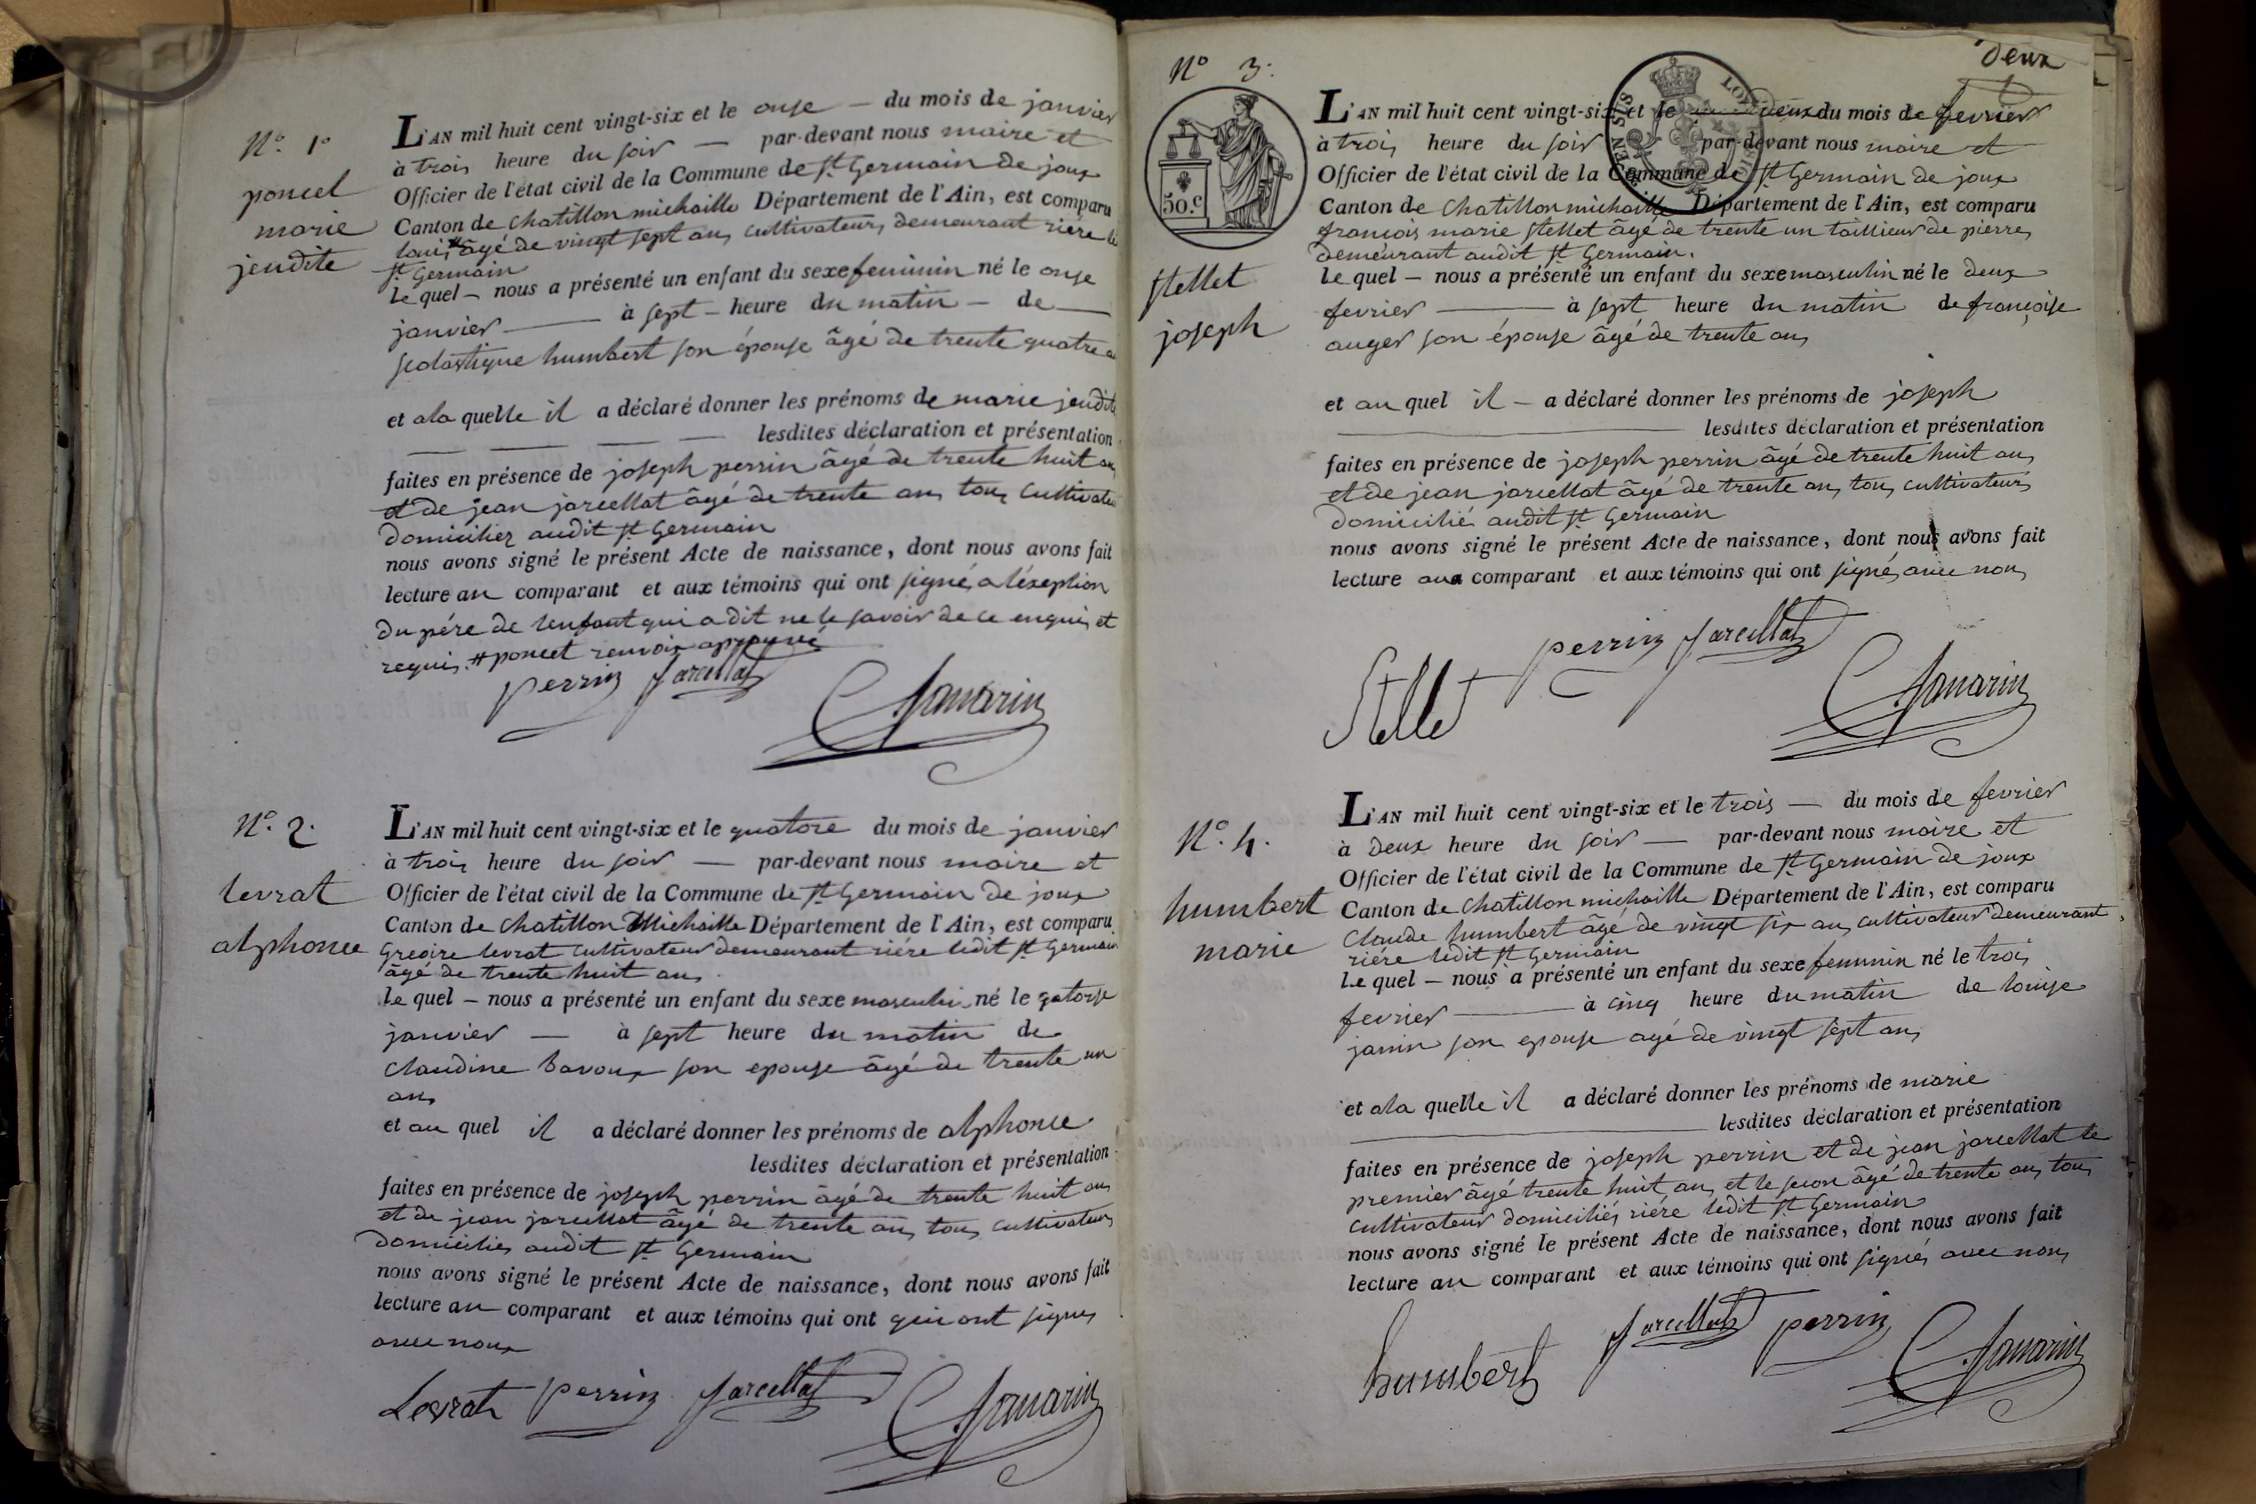 N.° 1°
poncet
marie
jendite
L'AN mil huit cent vingt-six et le onse — du mois de janvier
à trois heure du soir — par-devant nous maire et
Officier de l'état civil de la Commune de st Germain de joux
Canton de chatillon michaille Département de l'Ain, est comparu
louis # âgé de vingt sept ans cultivateur, demeurant riere le
st Germain
le quel — nous a présenté un enfant du sexe feminin né le onse
janvier — à sept — heure du matin — de —
scolastique humbert son épouse âgé de trente quatre
et a la quelle il a déclaré donner les prénoms de marie jendite
— — — lesdites déclaration et présentation
faites en présence de joseph perrin âgé de trente huit ans
et de jean jarcellat âgé de trente ans tous cultivate
domiciliez audit st Germain
nous avons signé le présent Acte de naissance, dont nous avons fait
lecture au comparant et aux témoins qui ont signé, a l'éxeption
du pére de l'enfant qui a dit ne le savoir de ce enquis et
requis. # poncet renvoir approuvé
perrin jarcellat
C. Samarin
N.° 2.
levrat
alphonce
L'AN mil huit cent vingt-six et le quatore du mois de janvier
à trois heure du soir — par-devant nous maire et
Officier de l'état civil de la Commune de st Germain de joux
Canton de chatillon Michaille Département de l'Ain, est comparu
Gregoire levrat cultivateur demeurant riére ledit st Germain
âgé de trente huit ans
le quel — nous a présenté un enfant du sexe masculin né le gatorse
janvier — à sept heure du matin de
claudine Bavoux son epouse âgé de trente un
ans
et au quel il a déclaré donner les prénoms de alphonce
lesdites déclaration et présentation
faites en présence de joseph perrin âgé de trente huit ans
et de jean jarcellat âgé de trente ans tous cultivateurs
domiciliés audit st Germain
nous avons signé le présent Acte de naissance, dont nous avons fait
lecture au comparant et aux témoins qui ont qui ont signes
avec nous
Levrat perrin jarcellat C. Samarin
deux
N° 3.
50.c
stellet
joseph
L'AN mil huit cent vingt-six et le deux du mois de fevrier
à trois heure du soir par-devant nous maire et
Officier de l'état civil de la Commune de st Germain de joux
Canton de chatillon michaille Département de l'Ain, est comparu
françois marie stellet âgé de trente un taillieur de pierre,
demeurant audit st Germain.
le quel — nous a présenté un enfant du sexe masculin né le deux
fevrier — à sept heure du matin de françoise
auger son épouse âgé de trente ans
et au quel il — a déclaré donner les prénoms de joseph
— lesdites déclaration et présentation
faites en présence de joseph perrin âgé de trente huit ans
et de jean jarcellat âgé de trente ans tous cultivateurs
domiciliés audit st Germain
nous avons signé le présent Acte de naissance, dont nous avons fait
lecture au comparant et aux témoins qui ont signés avec nous
Stellet perrin jarcellat C. Samarin
N.° 4.
humbert
marie
L'AN mil huit cent vingt-six et le trois — du mois de fevrier
à deux heure du soir — par-devant nous maire et
Officier de l'état civil de la Commune de st Germain de joux
Canton de chatillon michaille Département de l'Ain, est comparu
claude humbert âgé de vingt six ans cultivateur demeurant
riére ledit st Germain
le quel — nous a présenté un enfant du sexe feminin né le trois
fevrier — à cinq heure du matin de louise
janin son epouse agé de vingt sept ans
et a la quelle il a déclaré donner les prénoms de marie
— lesdites déclaration et présentation
faites en présence de joseph perrin et de jean jarcellat le
premier âgé trente huit ans et le secon âgé de trente ans tous
cultivateur domiciliés riere ledit st Germain
nous avons signé le présent Acte de naissance, dont nous avons fait
lecture au comparant et aux témoins qui ont signés avec nous
humbert jarcellat perrin C. Samarin